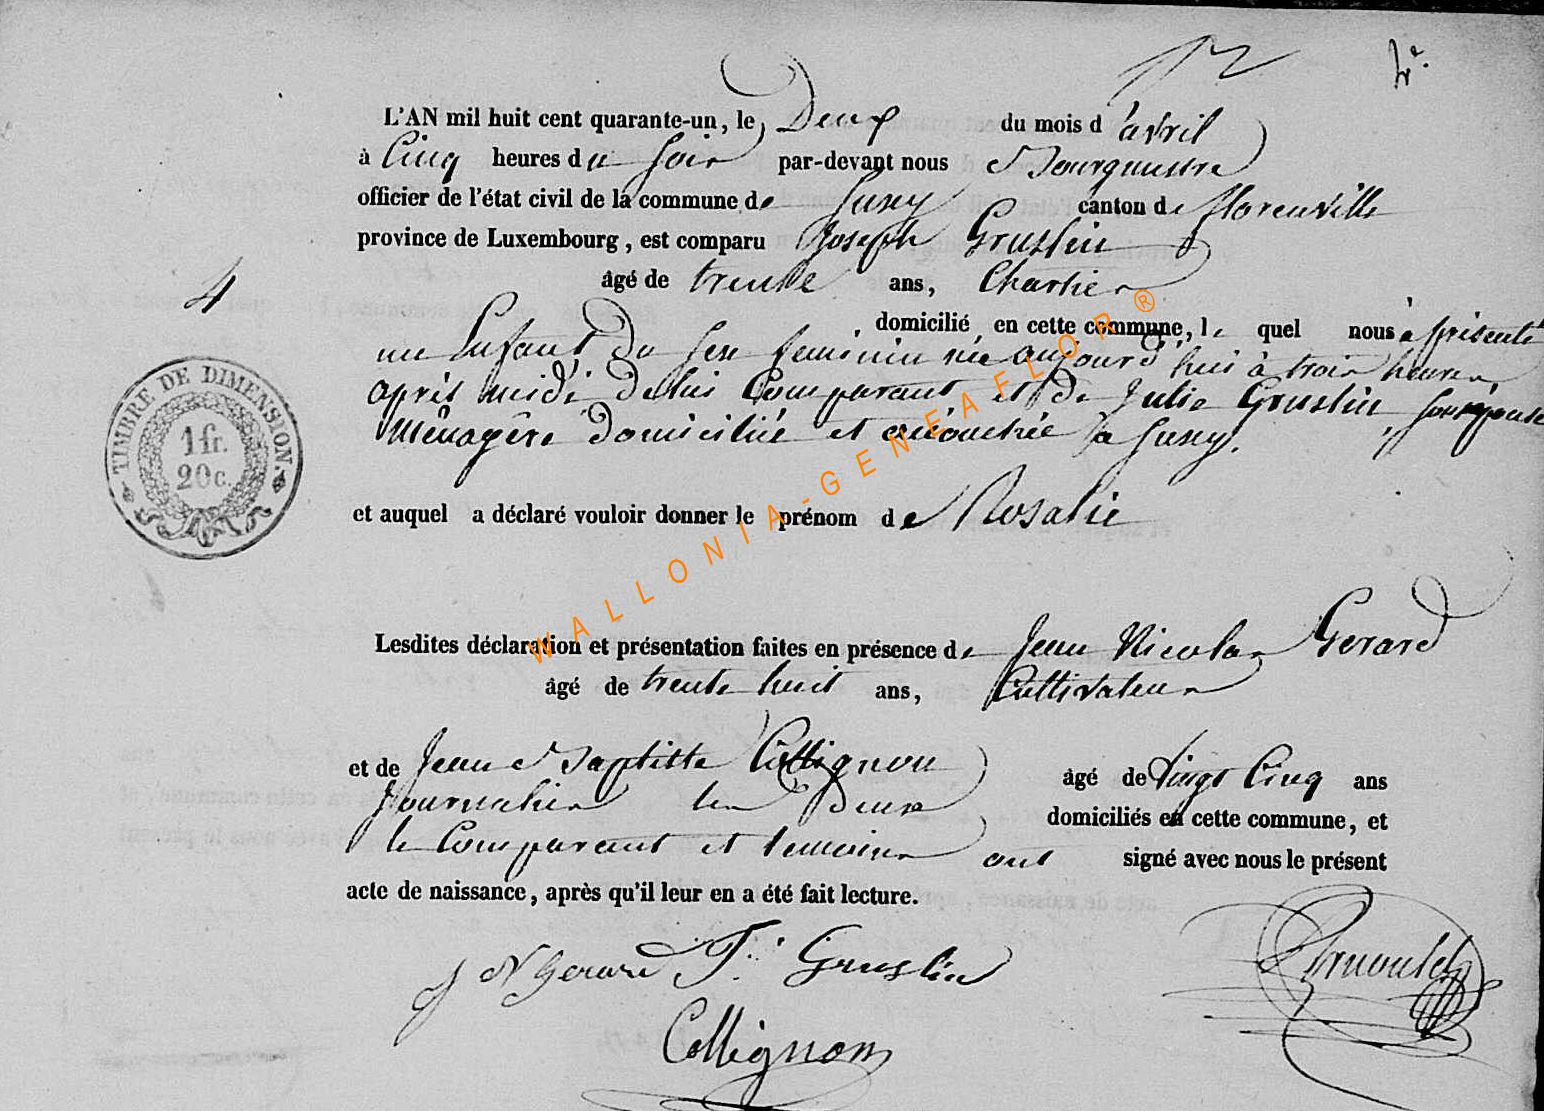 4e.
L'AN mil huit cent quarante-un, le Deux du mois d'avril
à Cinq heures du soir par-devant nous Bourgmestre
officier de l'état civil de la commune de Suxy canton de florenville
province de Luxembourg, est comparu Joseph Gruslin
4
âgé de trente ans, Charlier
domicilié en cette commune, lequel nous a présenté
un Enfant du sexe feminin née aujourd'hui à trois heures
après midi de lui Comparant et de Julie Gruslin, son épouse
Ménagère domiciliée et accouchée à Suxy.
TIMBRE DE DIMENSION.
1 fr.
20 c.
et auquel a déclaré vouloir donner le prénom de Rosalie
WALLONIA-GENEAFLOR®
Lesdites déclaration et présentation faites en présence de Jean Nicolas Gerard
âgé de trente huit ans, Cultivateur
et de Jean Baptiste Collignon âgé de vingt Cinq ans
Journalier les deux domiciliés en cette commune, et
le Comparant et temoins ont signé avec nous le présent
acte de naissance, après qu'il leur en a été fait lecture.
J N Gerard J. Gruslin Arnould
Collignon